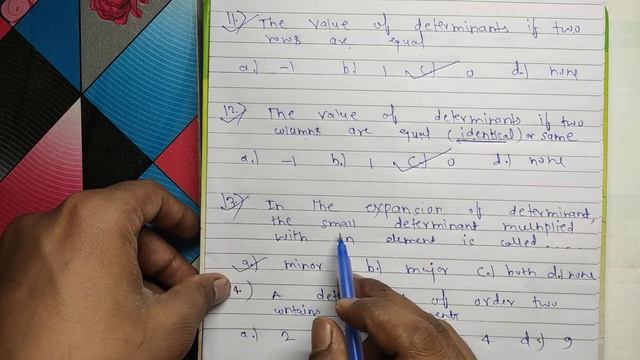 11.) The value of determinants if two
rows are equal
a.) -1 b.) 1 c.) 0 d.) none
12.) The value of determinants if two
columns are equal (identical) or same
a.) -1 b.) 1 c.) 0 d.) none
13.) In the expansion of determinant,
the small determinant multiplied
with an element is called....
a.) minor b.) major c.) both d.) none
14.) A of order two
contains
a.) 2 4 d.) 9